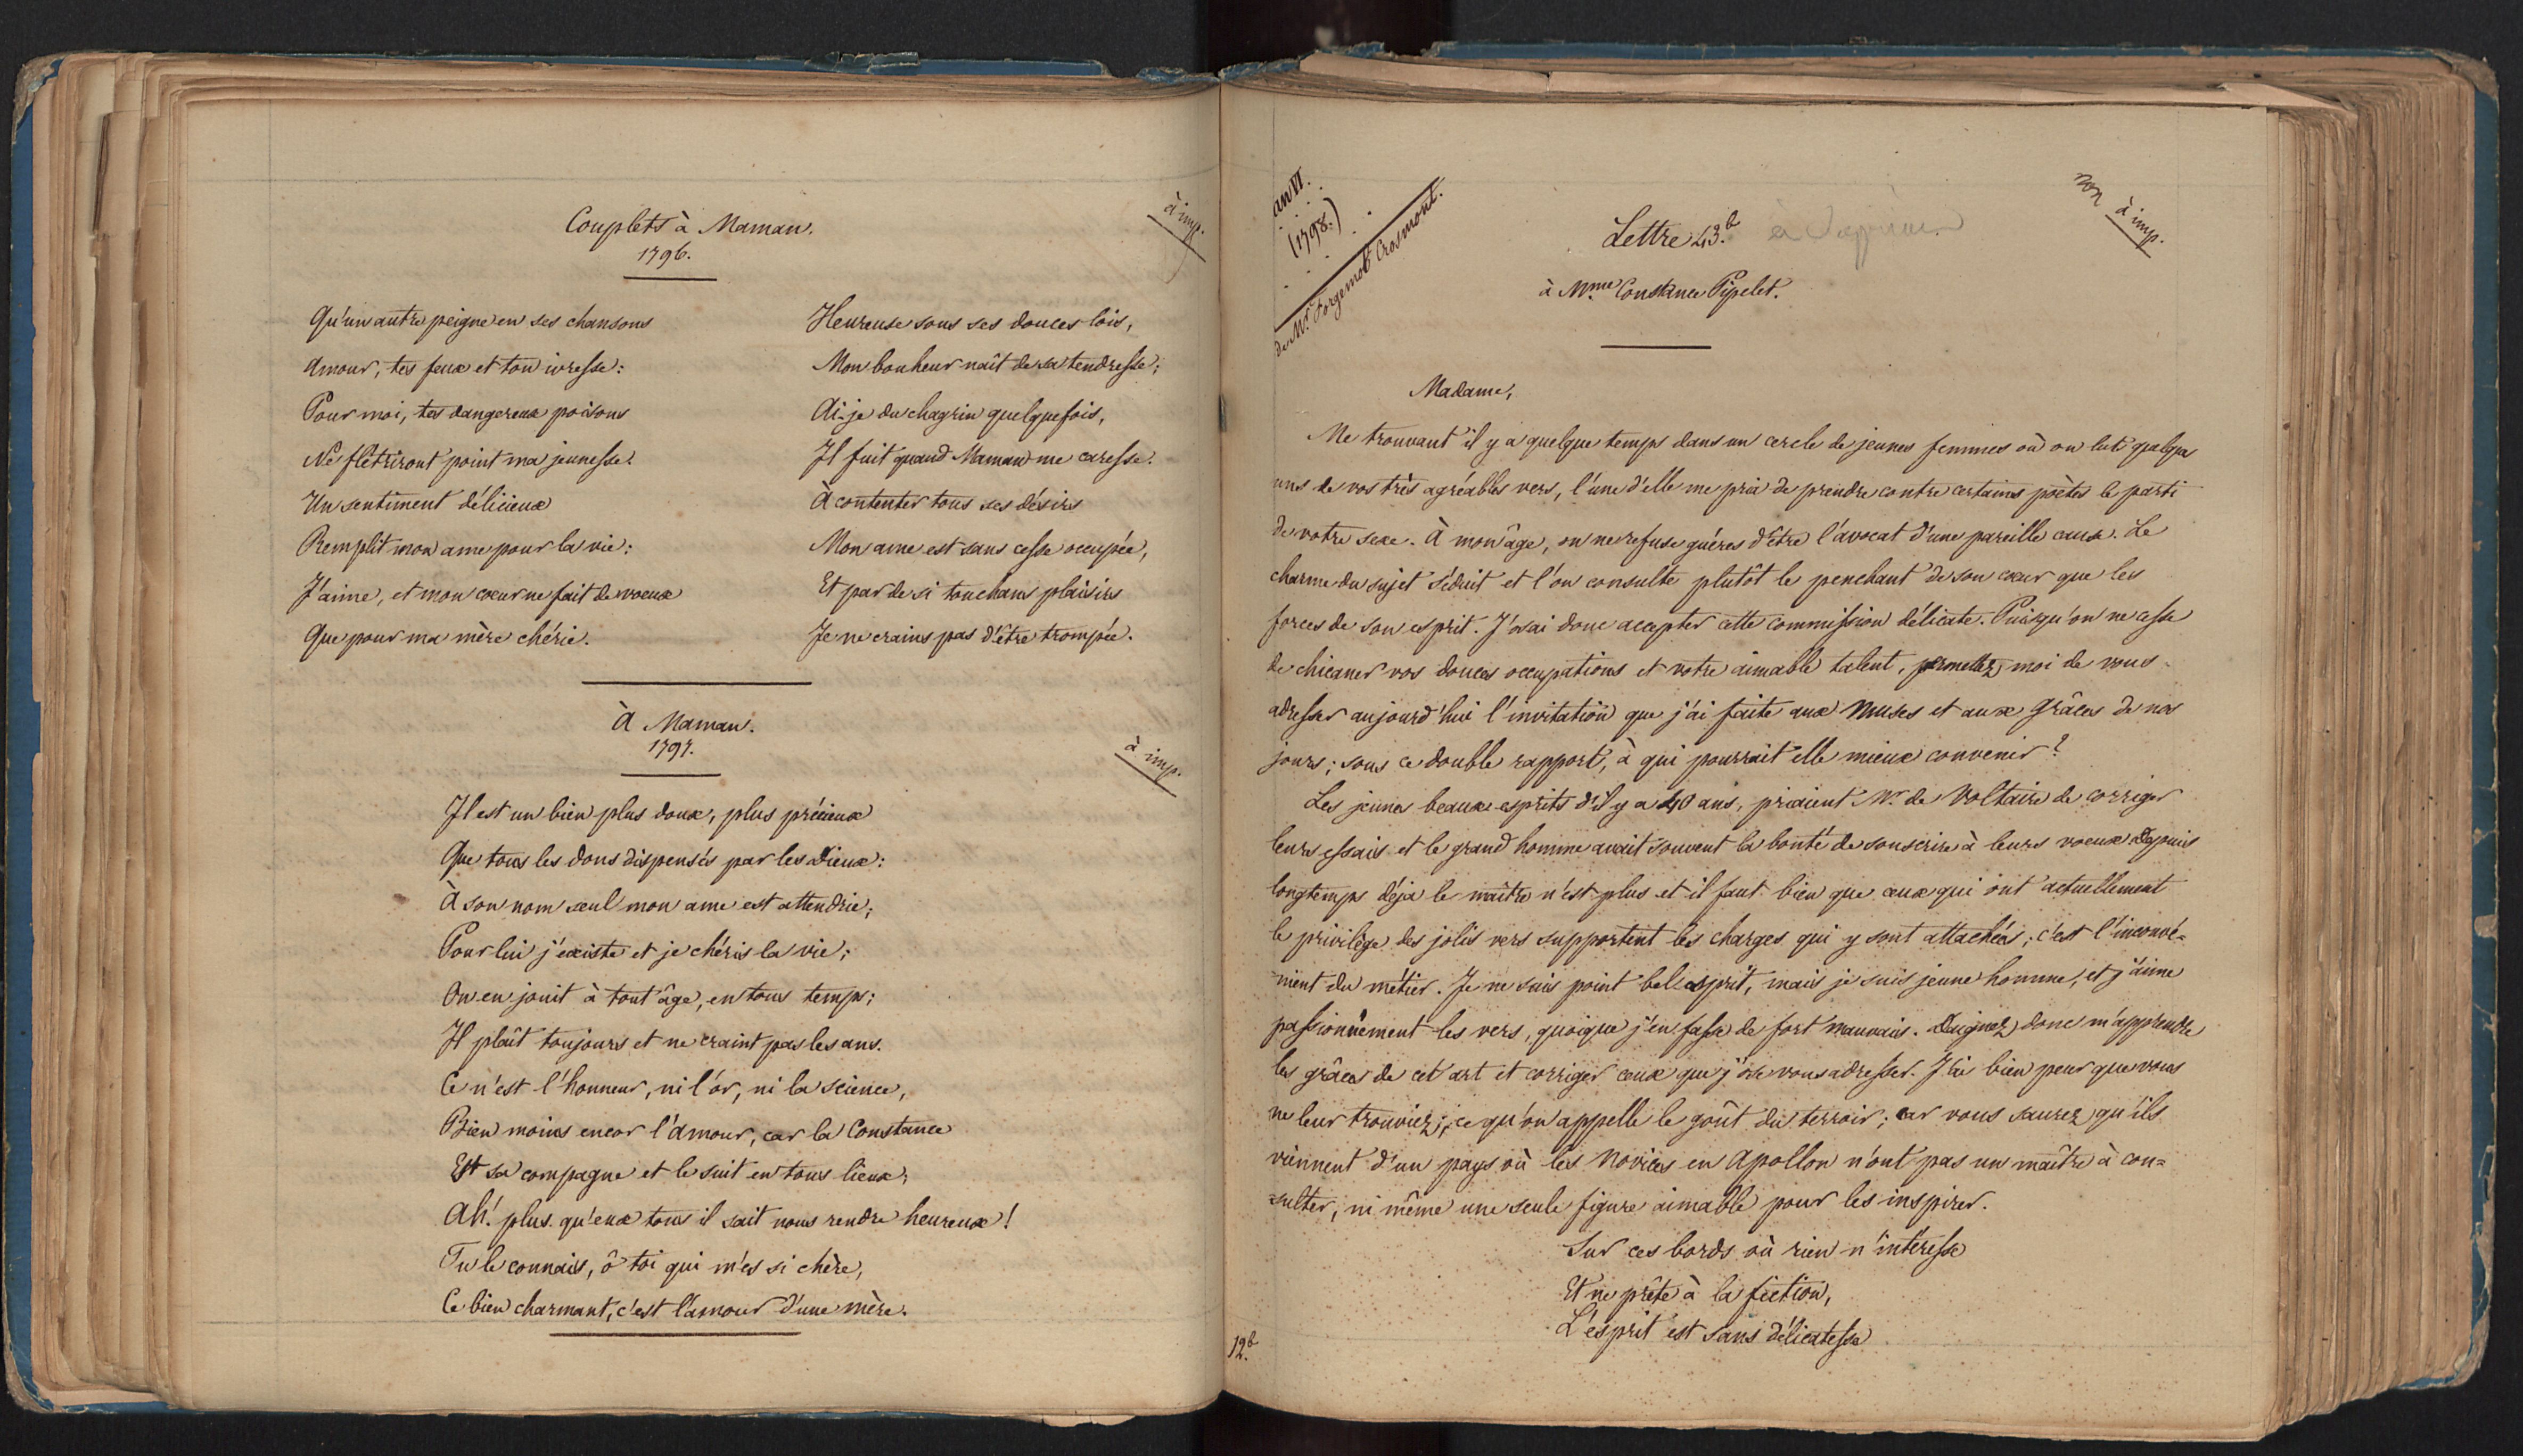 Couplets à Maman.
1796.
à imp.
Qu'un autre peigne en ses chansons
Amour, tes feux et ton ivresse:
Pour moi, tes dangereux poisons
Ne flétriront point ma jeunesse.
Un sentiment délicieux
Remplit mon ame pour la vie:
J'aime, et mon cœur ne fait de voeux
Que pour ma mère chérie.
Heureuse sous ses douces lois,
Mon bonheur naît de sa tendresse;
Ai-je du chagrin quelquefois,
Il fuit quand Maman me caresse.
À contenter tous ses désirs
Mon ame est sans cesse occupée,
Et par de si touchans plaisirs
Je ne crains pas d'être trompée.
À Maman.
1797.
à imp.
Il est un bien plus doux, plus précieux
Que tous les dons dispensés par les Dieux:
À son nom seul mon ame est attendrie;
Pour lui j'existe et je chéris la vie;
On en jouit à tout âge, en tous temps;
Il plaît toujours et ne craint pas les ans.
Ce n'est l'honneur, ni l'or, ni la science,
Bien moins encor l'amour, car la Constance
Est sa compagne et le suit en tous lieux;
Ah! plus qu'eux tous il sait nous rendre heureux!
Tu le connais, ô toi qui m'es si chère,
Ce bien charmant, c'est l'amour d'une mère.
an VI.
(1798.)
de Mr. Forgemot Crosmont.
non à imp.
Lettre 43.e
à Mme Constance Pipelet.
Madame,
Me trouvant il y a quelque temps dans un cercle de jeunes femmes où on lut quelqu
uns de vos très agréables vers, l'une d'elle me pria de prendre contre certains poètes le parti
de votre sexe. À mon âge, on ne refuse guéres d'être l'avocat d'une pareille cause. Le
charme du sujet séduit et l'on consulte plutôt le penchant de son cœur que les
forces de son esprit. J'osai donc accepter cette commission délicate. Puisqu'on ne cesse
de chicaner vos douces occupations et votre aimable talent, permettez moi de vous
adresser aujourd'hui l'invitation que j'ai faite aux Muses et aux Grâces de nos
jours; sous ce double rapport, à qui pourrait elle mieux convenir?
Les jeunes beaux esprits d'il y a 40 ans, priaient Mr. de Voltaire de corriger
leurs essais et le grand homme avait souvent la bonté de souscrire à leurs voeux Depuis
longtemps déja le maître n'est plus et il faut bien que ceux qui ont actuellement
le privilège des jolis vers supportent les charges qui y sont attachées; c'est l'inconvé=
nient du métier. Je ne suis point bel esprit, mais je suis jeune homme, et j'aime
passionnément les vers, quoique j'en fasse de fort mauvais. Daignez donc m'apprendre
les grâces de cet art et corriger ceux que j'ose vous adresser. J'ai bien peur que vous
ne leur trouviez; ce qu'on appelle le goût du terroir; car vous saurez qu'ils
viennent d'un pays où les Novices en Apollon n'ont pas un maître à con=
=sulter, ni même une seule figure aimable pour les inspirer.
Sur ces bords où rien n'intéresse
Et ne prête à la fiction,
L'esprit est sans délicatesse
12.e